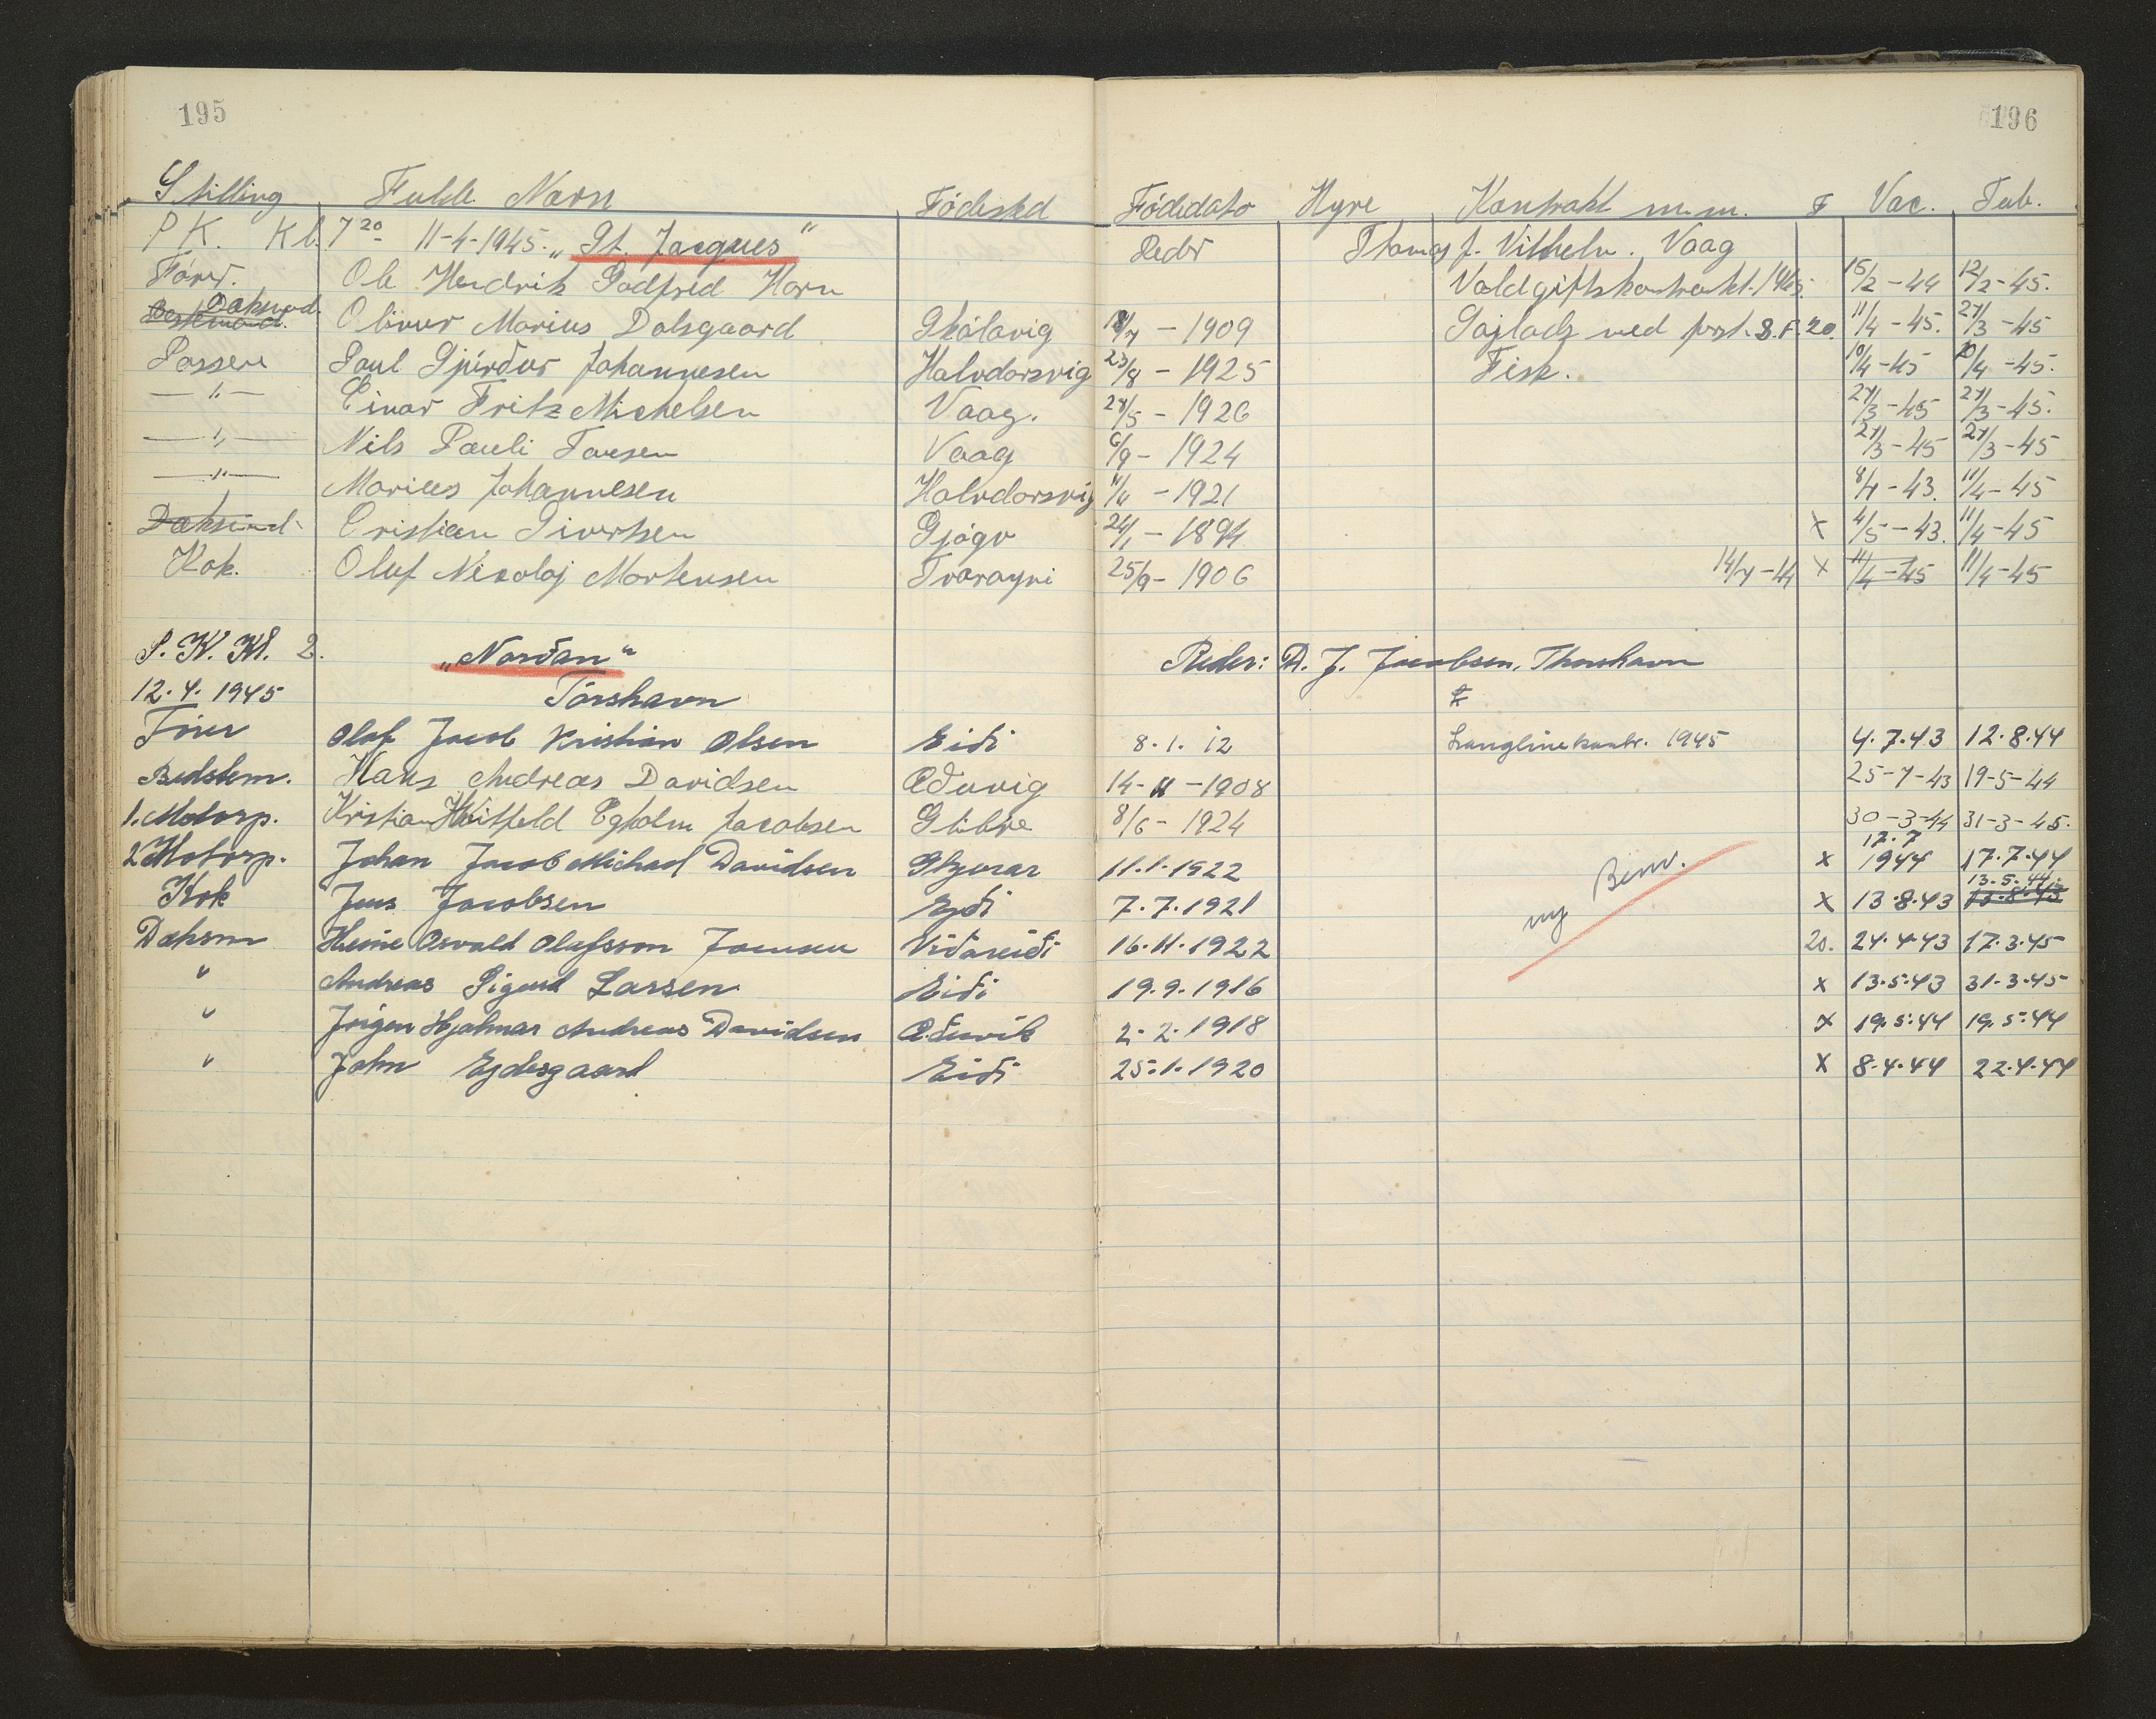 195
196
Stilling Fulde Navn Fødested Fødedato Hyre Kontrakt m.m. F Vac. Tub.
P K. Kl. 7 20 11-4-1945. „St. Jacques“ Reder Thomas f. Vilhelm. Vaag
Fører. Ole Hendrik Godfred Horn Voldgiftskontrakt. 1945. 15/2-44 12/2-45.
Bestmand. Dæksmd. Olivur Marius Dalsgaard Skálavig /7 - 1909 Sajlads ved S.F. 20. 11/4-45. 27/3-45
Passere Poul Gjürdur Johannesen Haldorsvig 23/8 - 1925 Fisk. 10/4-45 10/4-45.
—"— Einar Fritz Michelsen Vaag. 27/5 - 1926 27/3-45 27/3-45.
—"— Nils Pauli Tausen Vaag 6/9 - 1924 27/3-45 27/3-45
—"— Marius Johannesen Haldorsvig - 1921 -43. 11/4-45
Dæksmd. Cristian Sivertsen Gjógv 24/1 - 1894 x 4/5-43. 11/4-45
Kok. Oluf Nikolaj Mortensen Tvørayri 25/9- 1906 14/7-44 x 11/4-45 11/4-45
P. K. Kl. 2. „Norðan“ Reder: D. J. Jacobsen, Thorshavn
12. 4. 1945 Tórshavn
Fører Olaf Jacob Kristian Olsen Eiði 8. 1. 12 Langlinekontr. 1945 4.7.43 12.8.44
Bedstem. Hans Andreas Davidsen Oduvig 14-11-1908 25-7-43 19-5-44
1. Motorp. Kristian Hvitfeld Egholm Jacobsen Glibre 8/6 - 1924 30-3-44 31-3-45.
2 Motorp. Johan Jacob Michael Davidsen Skjvrar 11.1.1922 x 17.7 1944 17.7.44
Kok Jens Jacobsen Ejdi 7.7.1921 ny Bem. x 13.8.43 13.5.44. 13.8.43
Dæksm Heine Osvald Olafsson Joensen Viðareiði 16.11.1922 20. 24.4.43 17.3.45
" Andreas Sigurd Larsen Eiði 19.9.1916 x 13.5.43 31.3.45
" Jørgen Hjalmar Andreas Davidsen Oduvik 2. 2. 1918 x 19.5.44 19.5.44
" John Ejdesgaard Eiði 25.1.1920 x 8.4.44 22.4.44